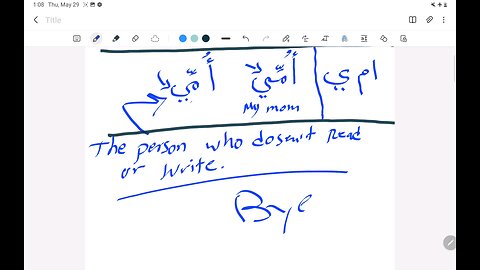 1:08 Thu, May 29
Title
ام ي أُمِّي أُمِّيّ
My mom
The person who doesn't Read
or write.
Bye